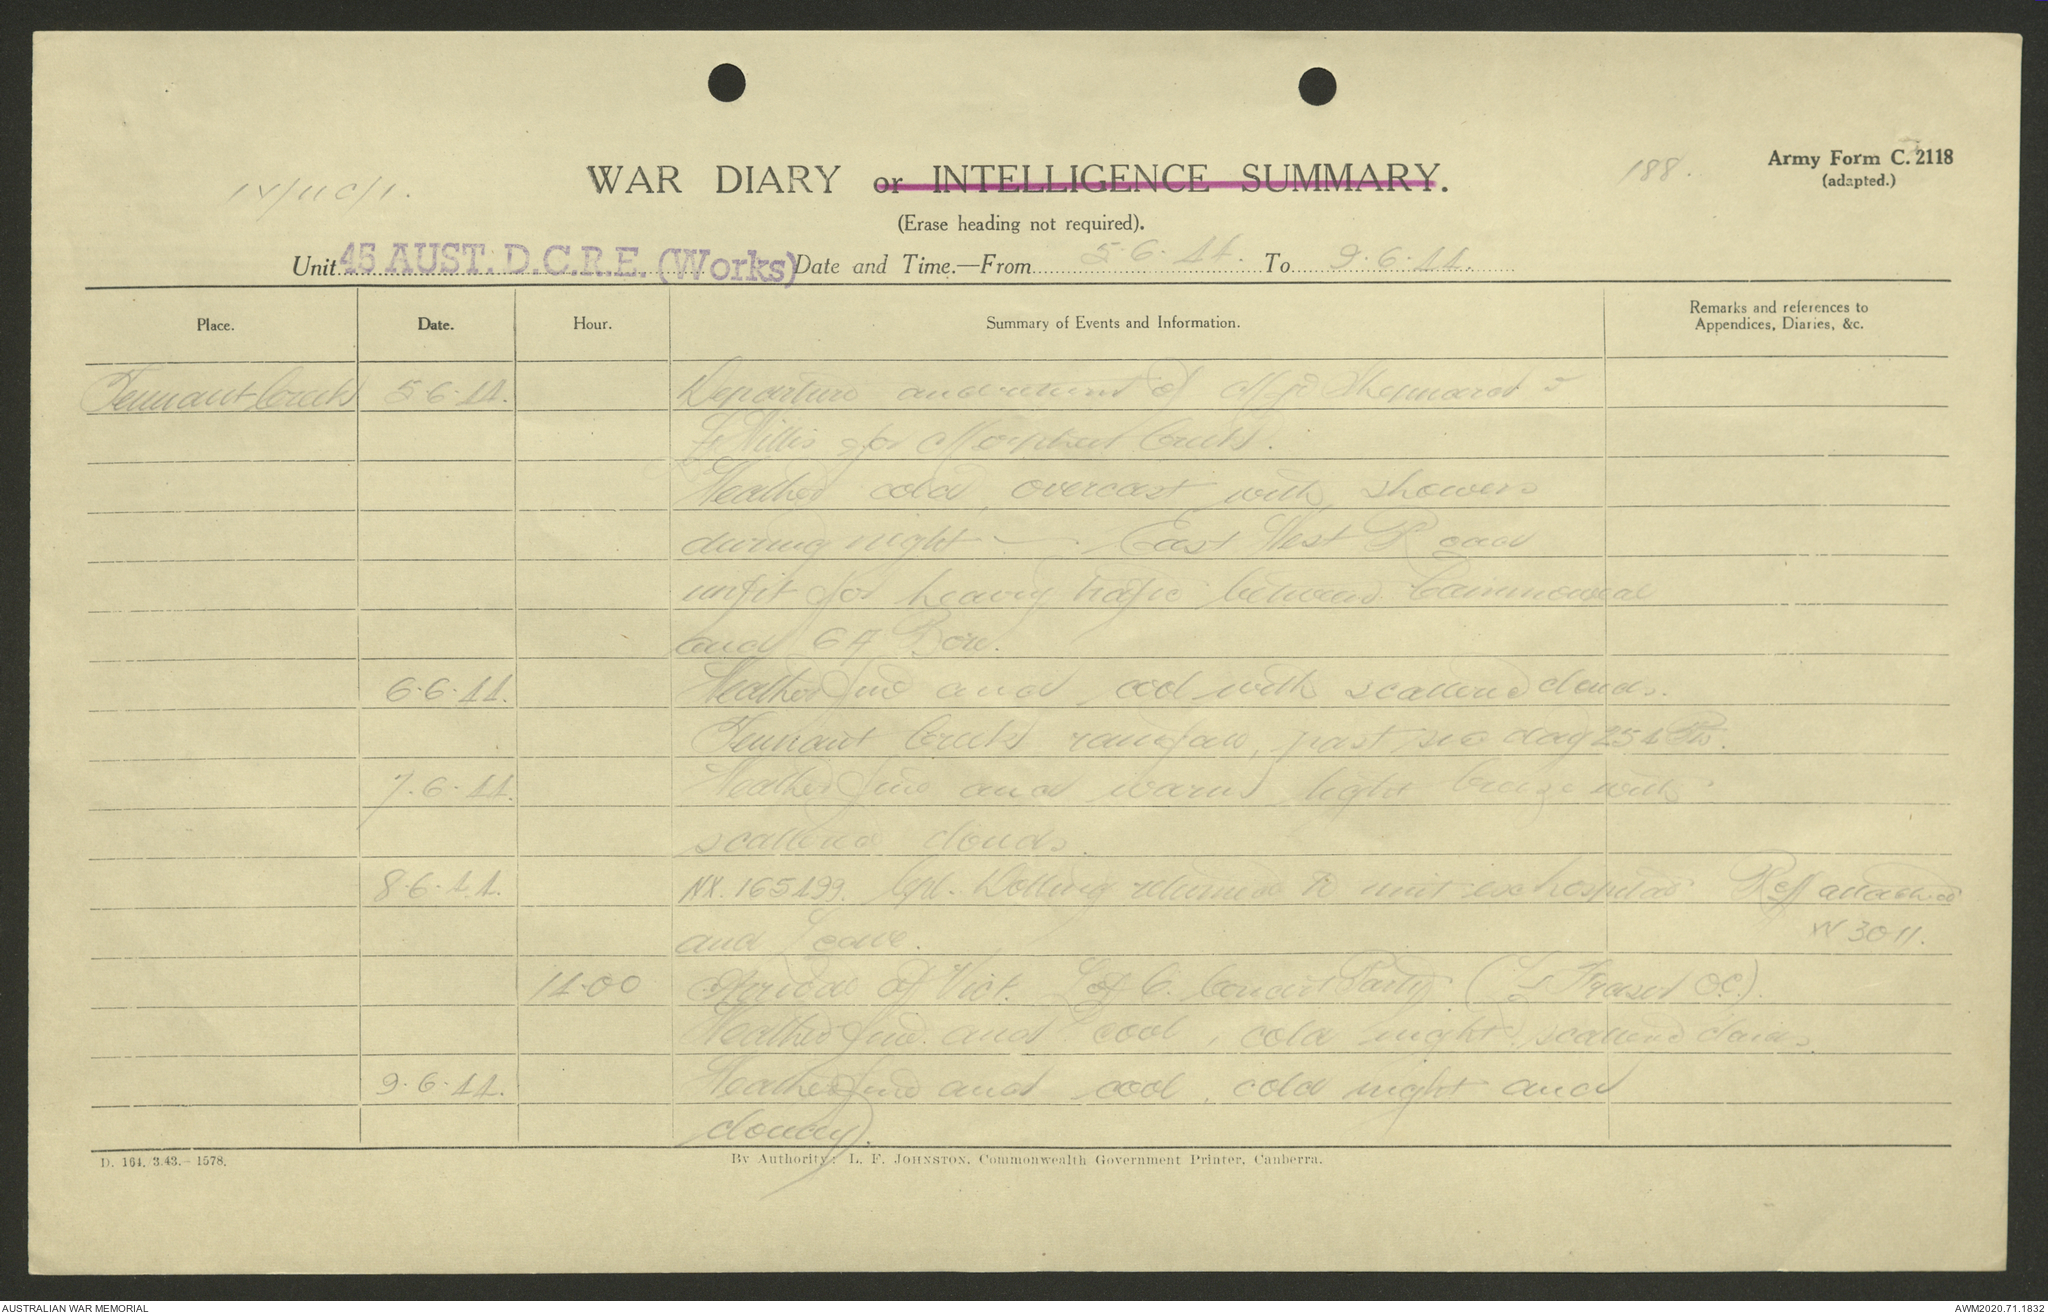 188.
Army Form C. 2118
(adapted.)
WAR DIARY or INTELLIGENCE SUMMARY.
(Erase heading not required).
Unit 45 AUST. D.C.R.E. (Works) Date and Time.—From 5.6.44. To 9.6.44.
Place. Date. Hour. Summary of Events and Information. Remarks and references to
Appendices, Diaries, &c.
Tennant Creek 5.6.44. Departure and return of Mjr Sheppard &
Lt Willis for Morphett Creek.
Weather cold, overcast with showers
during night — East West Road
unfit for heavy trafic between Cammoweal
and 64 Bore.
6.6.44. Weather fine and cool with scattered clouds.
Tennant Creek rainfall, past day 254 Pts.
7.6.44. Weather fine and warm light breeze with
scattered clouds.
8.6.44. NX.165499. Cpl. Dolling returned to unit ex hospital Reff attached
and Leave. W 3011.
14.00 Arrival of Vict. L of C. Concert Party (Lt Fraser O.C.).
Weather fine and cool, cold night scattered clouds.
9.6.44. Weather fine and cool, cold night and
cloudy.
D. 164. 3.43.—1578. By Authority: L. F. JOHNSTON, Commonwealth Government Printer, Canberra.
AUSTRALIAN WAR MEMORIAL AWM2020.71.1832